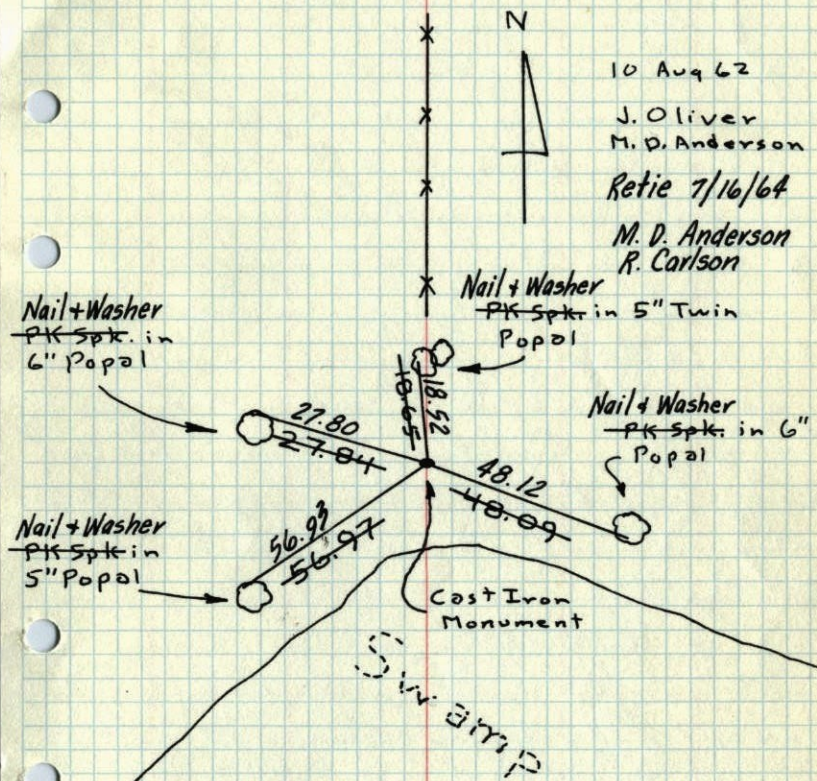 N
10 Aug 62
J. Oliver
M. D. Anderson
Retie 7/16/64
M. D. Anderson
R. Carlson
Nail + Washer
PK Spk. in 5" Twin
Popal
Nail + Washer
PK Spk. in
6" Popal
27.80
27.84
18.65
18.52
Nail & Washer
PK Spk. in 6"
Popal
48.12
48.09
Nail + Washer
PK Spk in
5" Popal
56.93
56.97
Cast Iron
Monument
Swamp